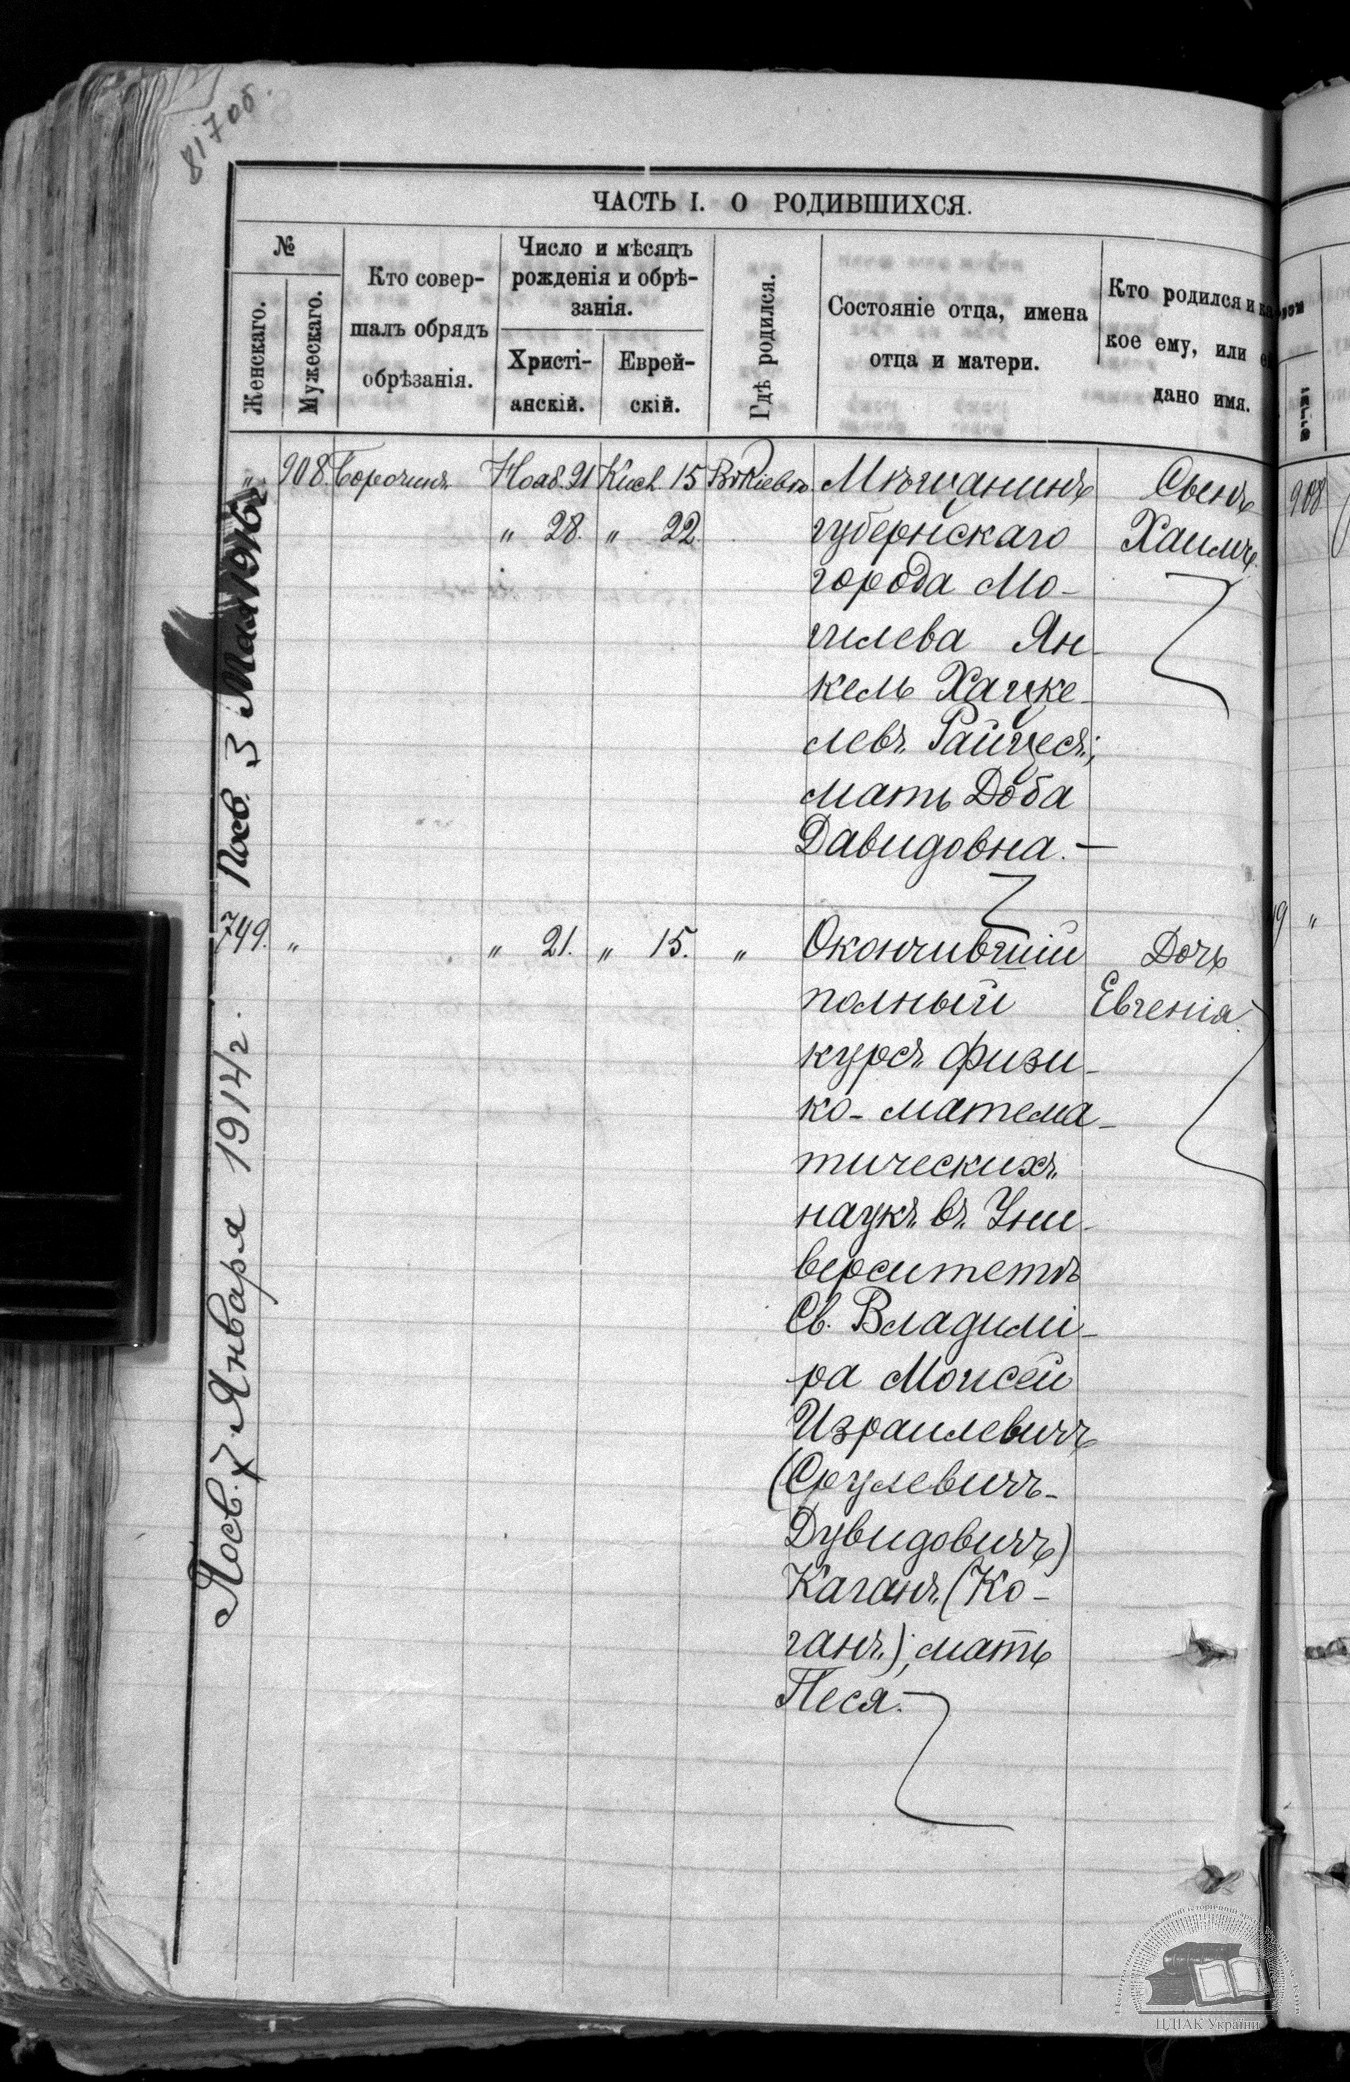 817 об.
ЧАСТЬ I. О РОДИВШИХСЯ.
№
Женскаго.
Мужескаго.
Кто совер-
шалъ обрядъ
обрѣзанія.
Число и мѣсяцъ
рожденія и обрѣ-
занія.
Христі-
анскій.
Еврей-
скій.
Гдѣ родился.
Состояніе отца, имена
отца и матери.
Кто родился и ка-
кое ему, или ей
дано имя.
" 908. Борочинъ Нояб. 21 Кисл. 15 Въ Кіевѣ Мѣщанинъ Сынъ
" 28. " 22. губернскаго Хаимъ.
города Мо-
гилева Ян-
кель Хацке-
левъ Райцесъ;
мать Доба
Давидовна. —
749. " " 21. " 15. " Окончившій Дочь
полный Евгенія.
курсъ физи-
ко-матема-
тическихъ
наукъ въ Уни-
верситетѣ
Св. Владимі-
ра Моисей
Израилевичъ
(Срулевичъ-
Дувидовичъ)
Каганъ (Ко-
ганъ); мать
Песя.
Посв. 3 Мая 1916г
Посв. 7 Января 1914г.
908
ЦДІАК України